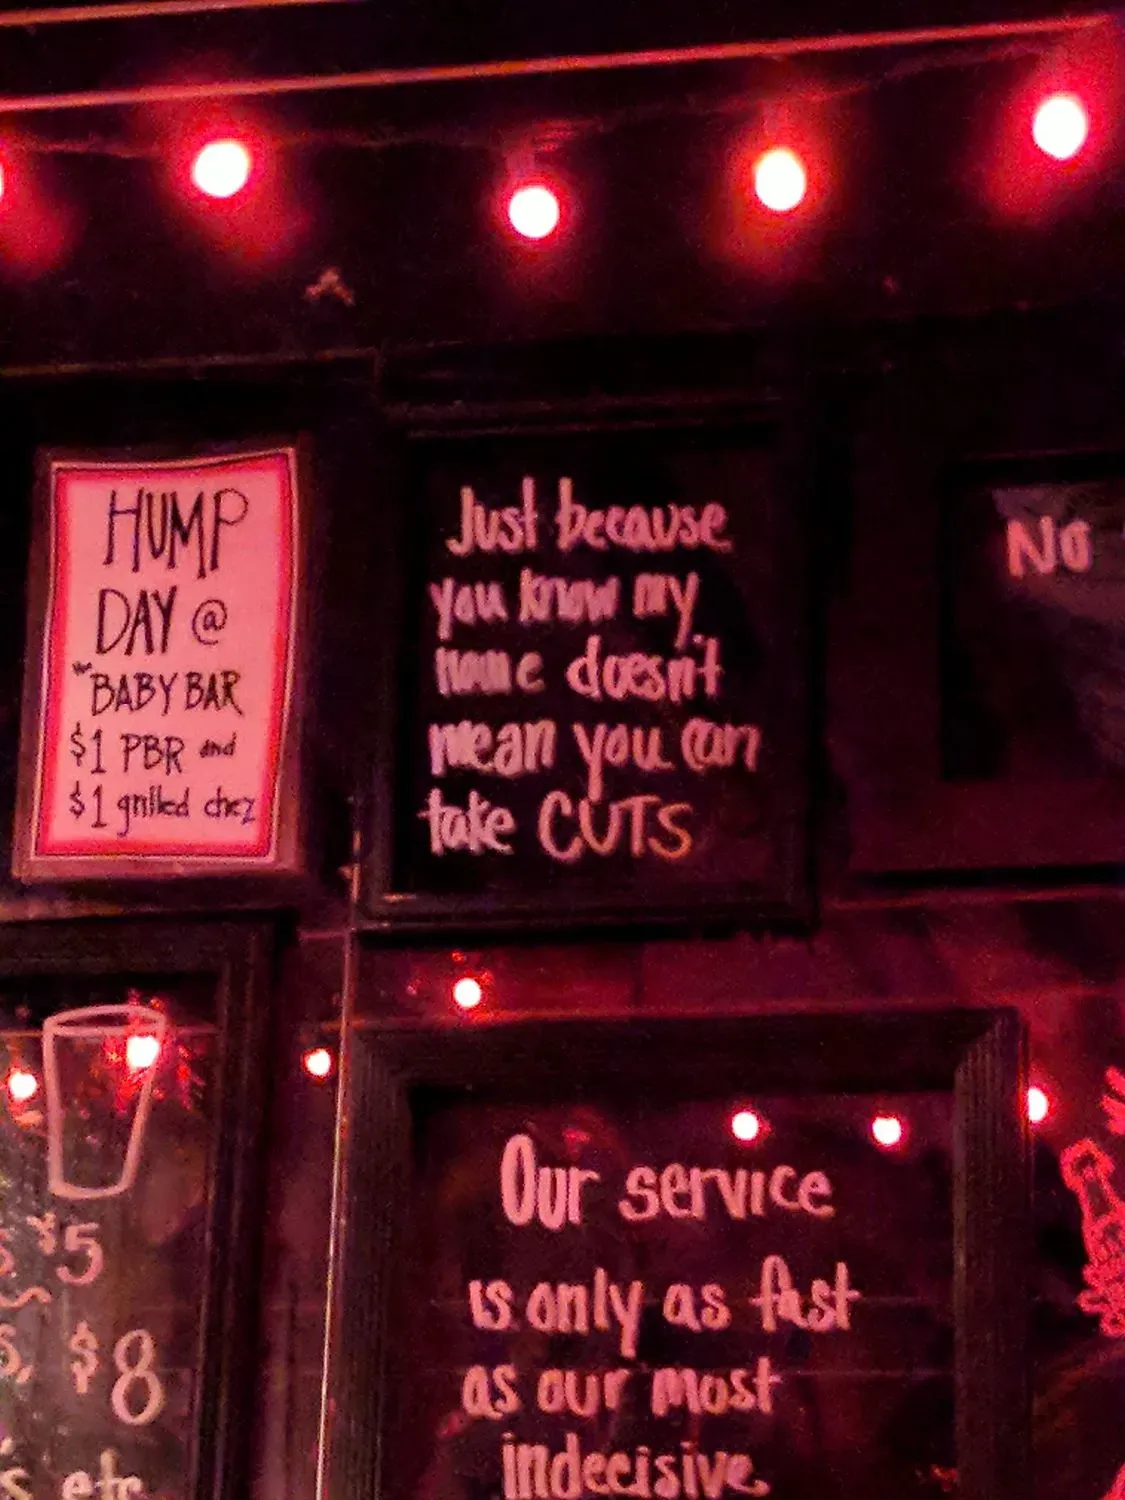 HUMP
DAY @
BABY BAR
$1 PBR and
$1 grilled chez
Just because
you know my
name doesn't
mean you can
take CUTS
No
$5
$8
etc
Our service
is only as fast
as our most
indecisive